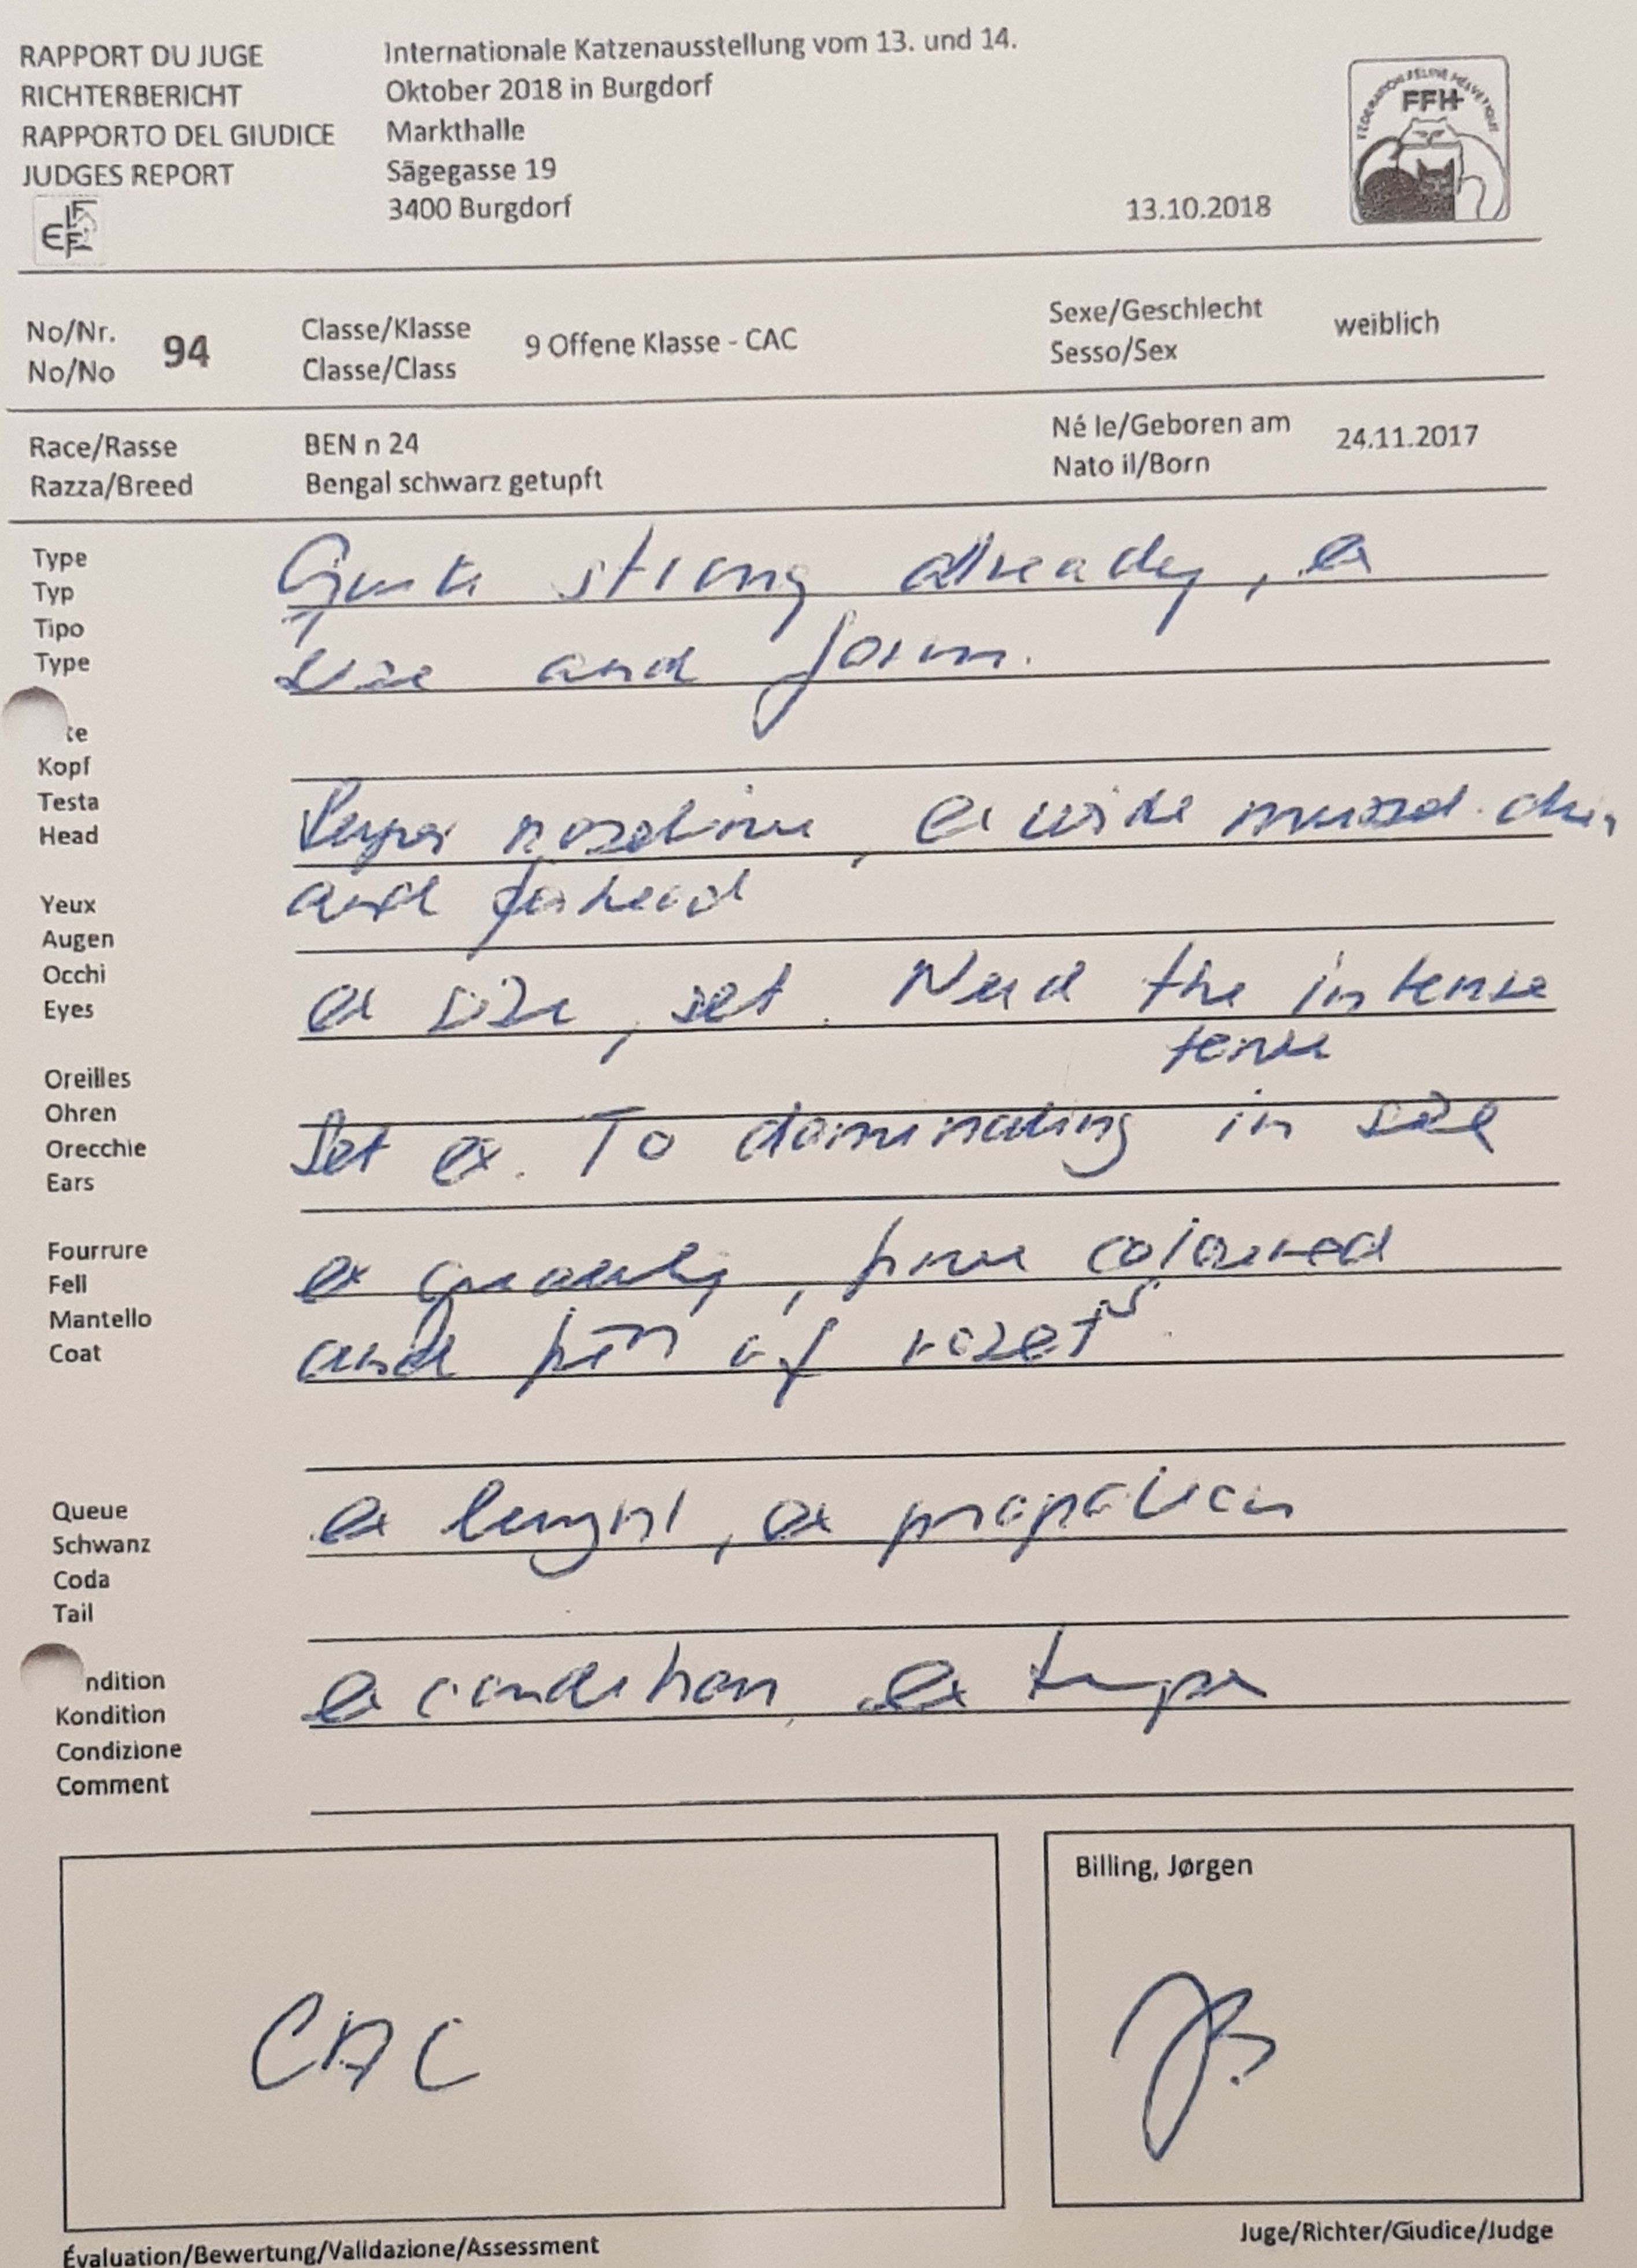 RAPPORT DU JUGE
RICHTERBERICHT
RAPPORTO DEL GIUDICE
JUDGES REPORT
Internationale Katzenausstellung vom 13. und 14.
Oktober 2018 in Burgdorf
Markthalle
Sägegasse 19
3400 Burgdorf
13.10.2018
FEDERATION FELINE HELVETIQUE
FFH
No/Nr.
No/No
94
Classe/Klasse
Classe/Class
9 Offene Klasse - CAC
Sexe/Geschlecht
Sesso/Sex
weiblich
Race/Rasse
Razza/Breed
BEN n 24
Bengal schwarz getupft
Né le/Geboren am
Nato il/Born
24.11.2017
Type
Typ
Tipo
Type
strong already, ex
size and form.
Kopf
Testa
Head
noseline, ex wide chin
and
Yeux
Augen
Occhi
Eyes
ex size, set. Need the intense
Oreilles
Ohren
Orecchie
Ears
Set ex. To dominating in size
Fourrure
Fell
Mantello
Coat
ex coloured
and of rozet
Queue
Schwanz
Coda
Tail
ex , ex
ndition
Kondition
Condizione
Comment
ex condition, ex type
CAC
Billing, Jørgen
JB
Évaluation/Bewertung/Validazione/Assessment
Juge/Richter/Giudice/Judge